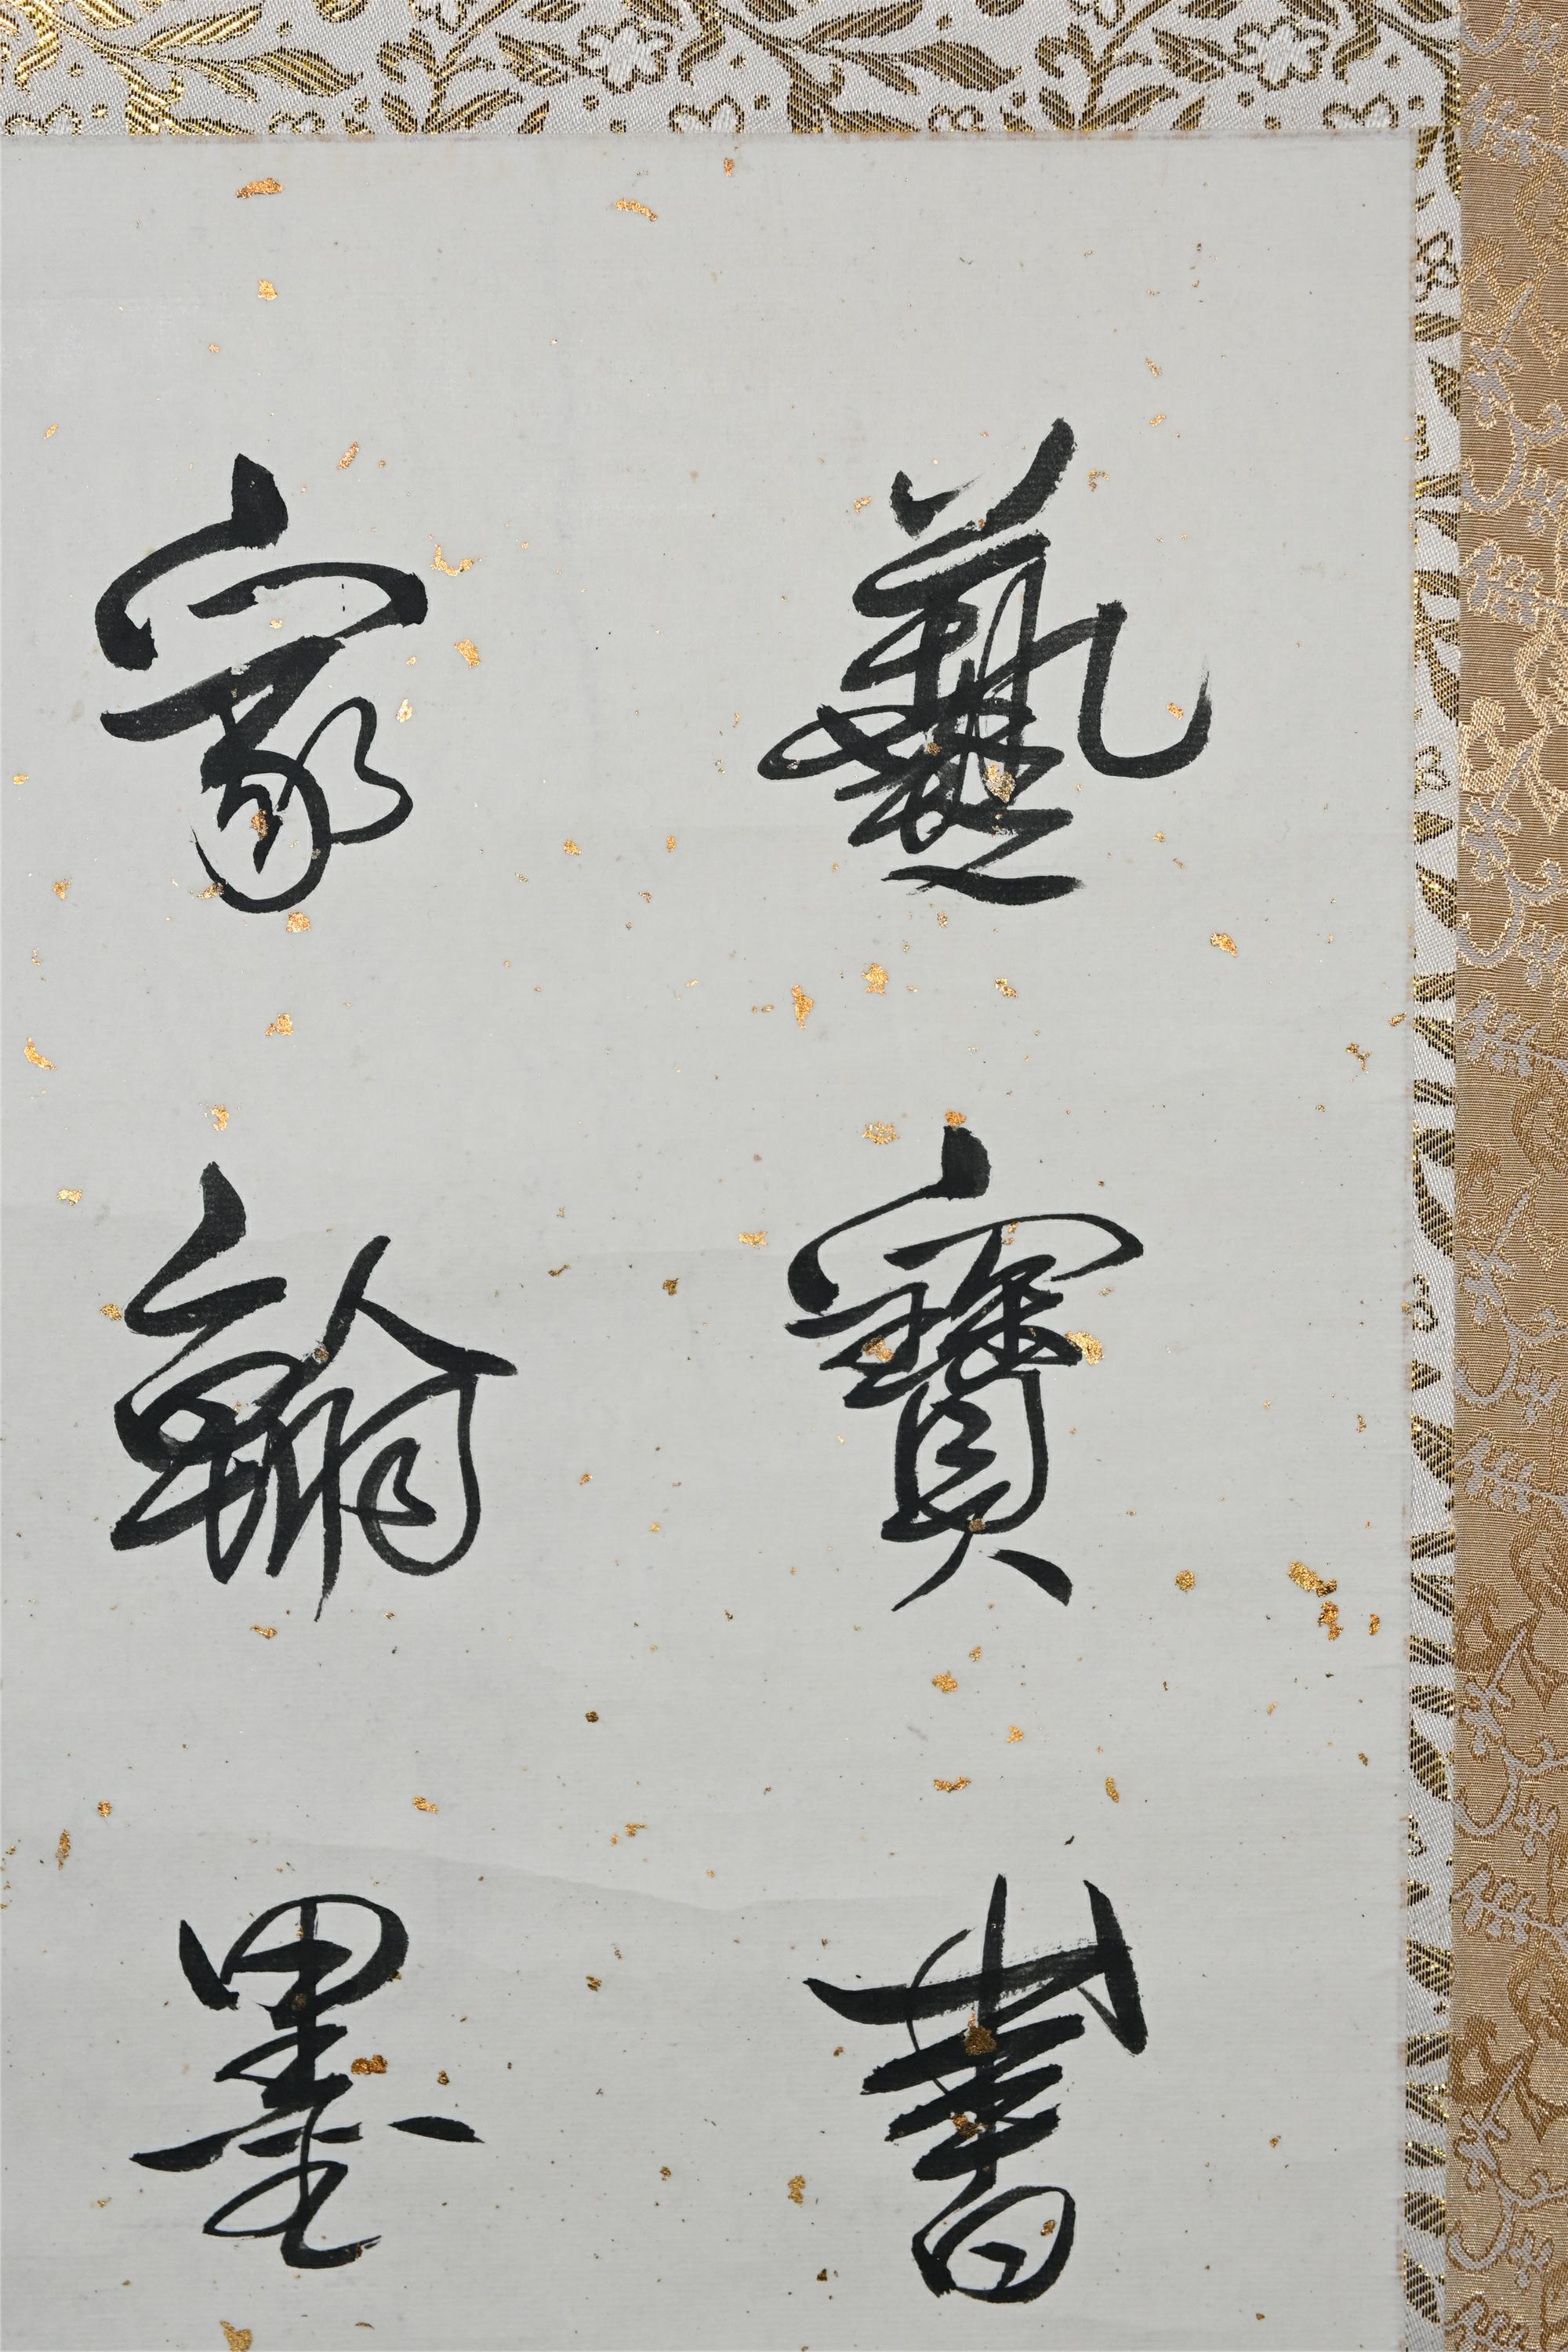 藝寶書
家翰墨